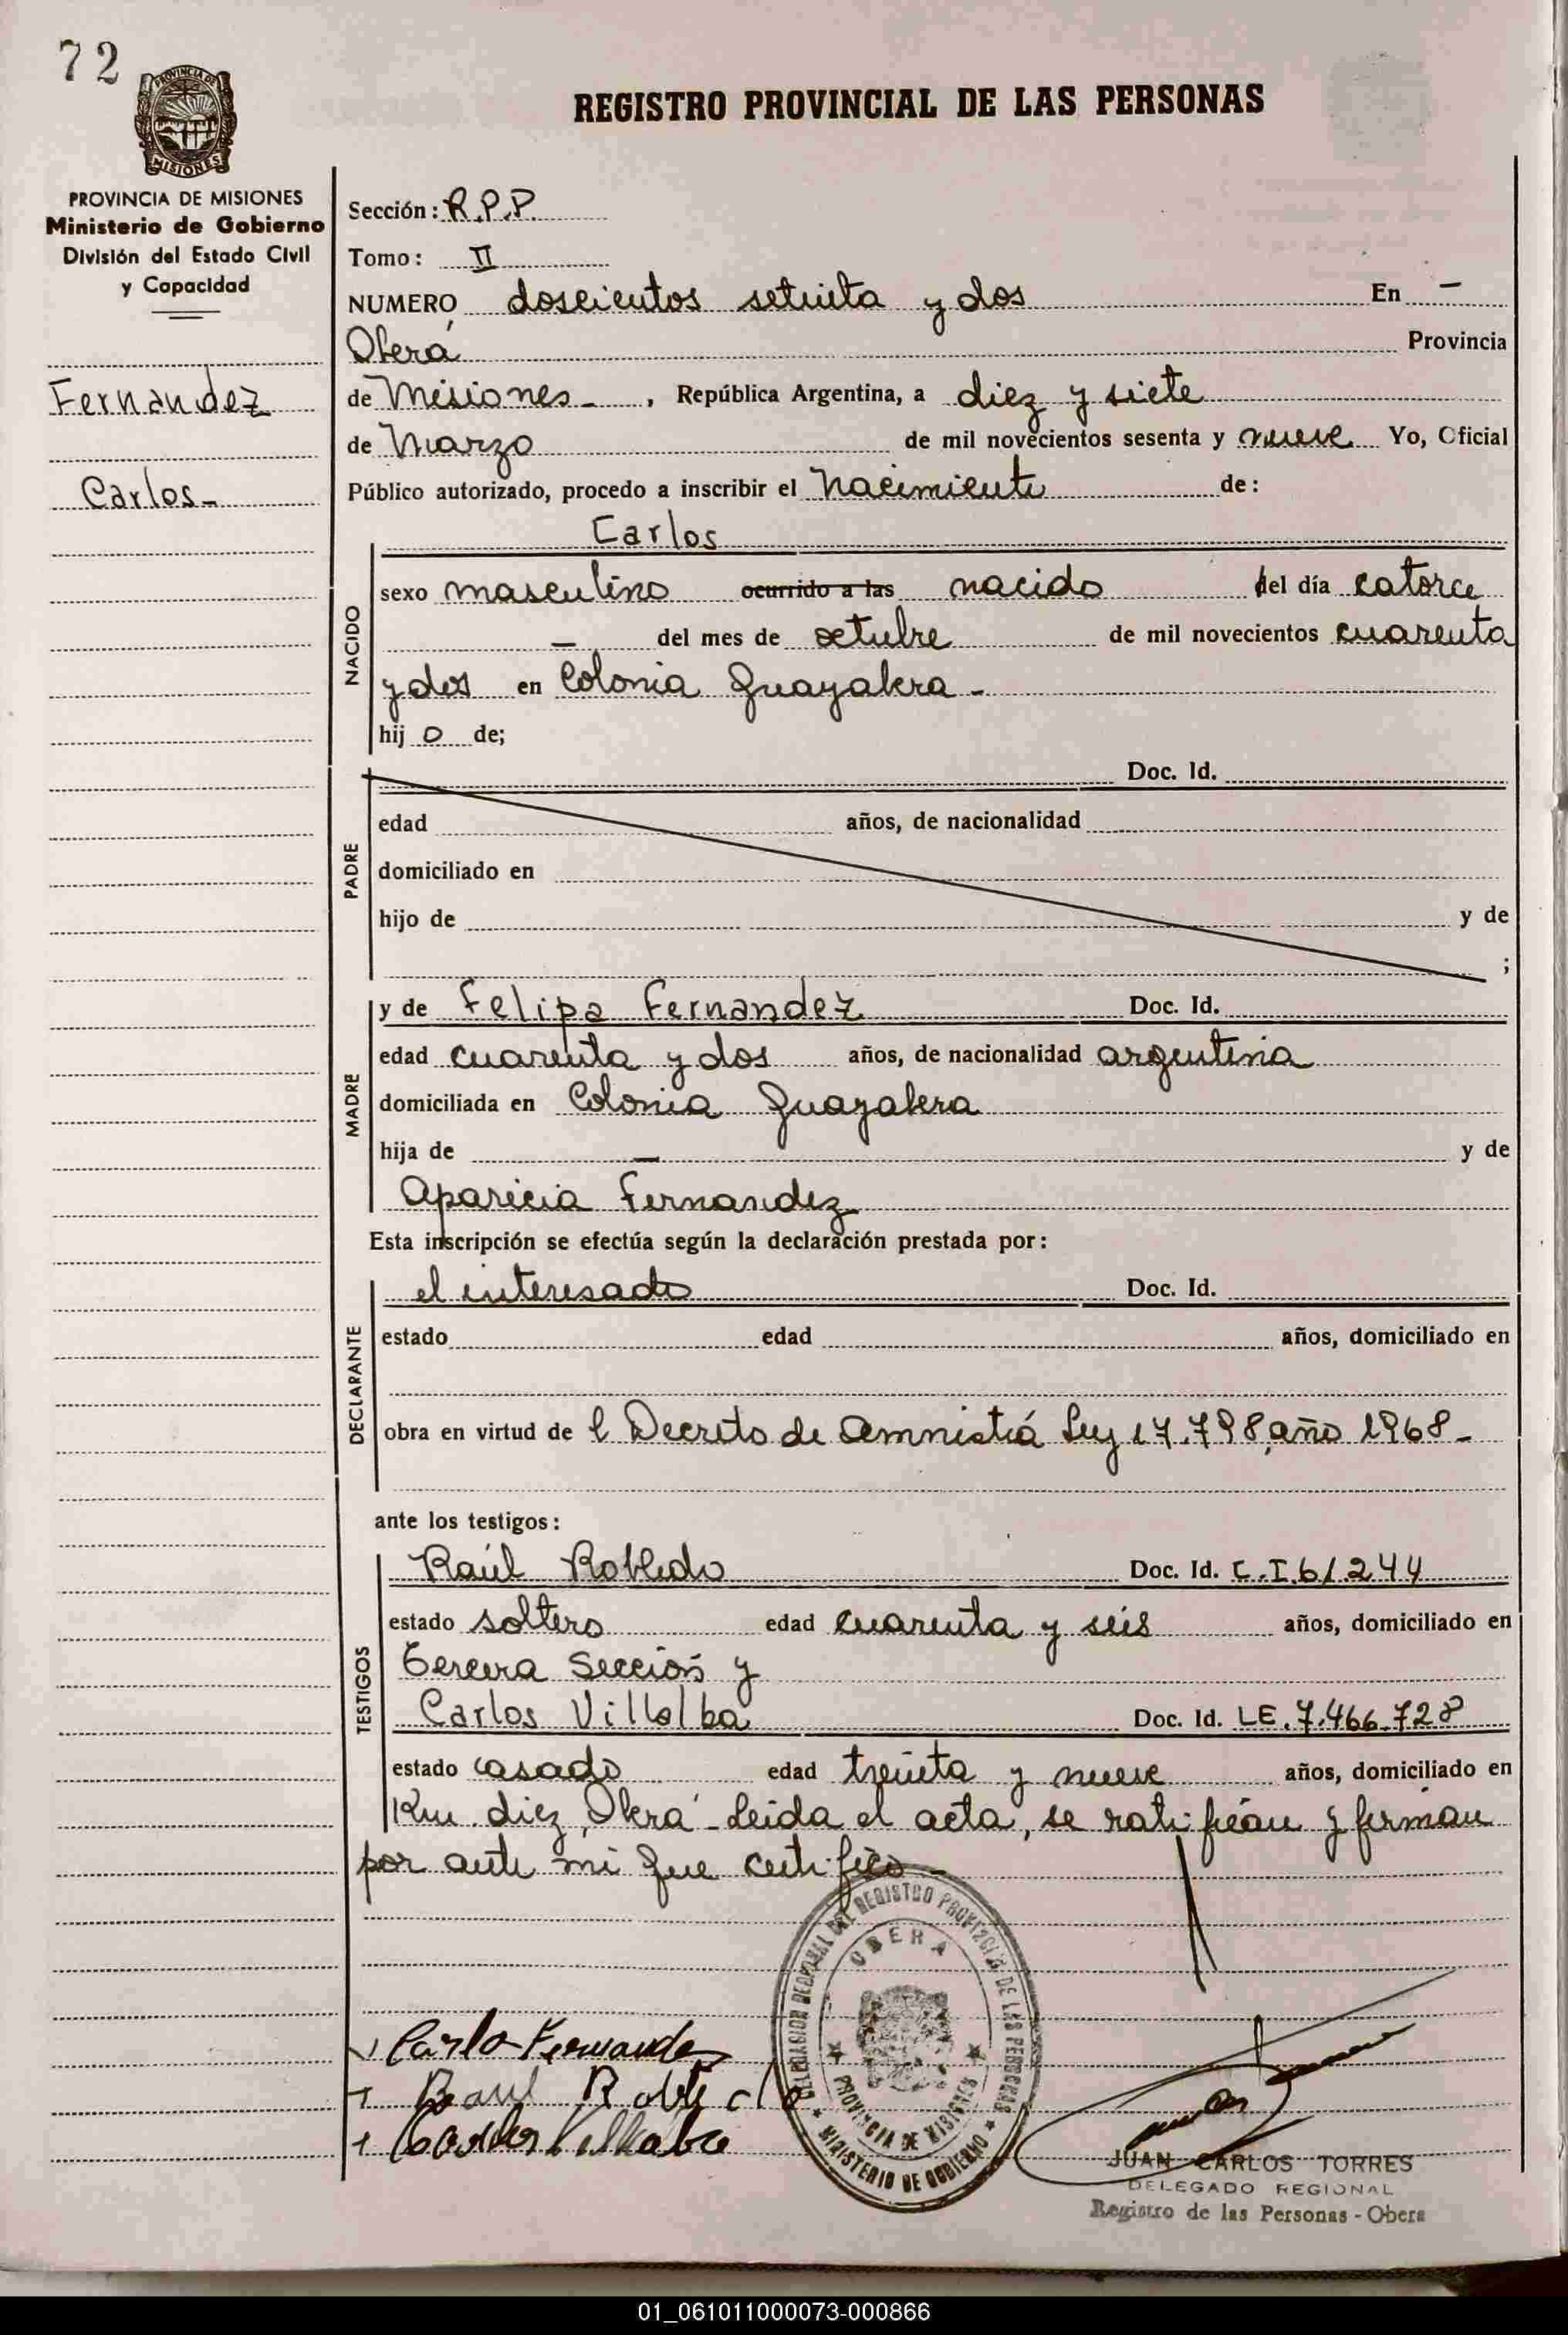 72
PROVINCIA DE
MISIONES
REGISTRO PROVINCIAL DE LAS PERSONAS
PROVINCIA DE MISIONES
Ministerio de Gobierno
División del Estado Civil
y Capacidad
Fernandez
Carlos-
Sección: R.P.P.
Tomo: II
NUMERO doscientos setenta y dos En -
Oberá Provincia
de Misiones-, República Argentina, a diez y siete
de Marzo de mil novecientos sesenta y nueve Yo, Oficial
Público autorizado, procedo a inscribir el Nacimiento de:
Carlos
NACIDO
sexo masculino ocurrido a las nacido del día catorce
- del mes de octubre de mil novecientos cuarenta
y dos en Colonia Guayabera-
hijo de;
PADRE
Doc. Id.
edad años, de nacionalidad
domiciliado en
hijo de y de
;
MADRE
y de Felipa Fernandez Doc. Id.
edad cuarenta y dos años, de nacionalidad argentina
domiciliada en Colonia Guayabera
hija de - y de
Aparicia Fernandez
Esta inscripción se efectúa según la declaración prestada por:
DECLARANTE
el interesado Doc. Id.
estado edad años, domiciliado en
obra en virtud de l Decreto de Amnistiá Ley 17.798, año 1968-
ante los testigos:
TESTIGOS
Raúl Robledo Doc. Id. C.I.61.244
estado soltero edad cuarenta y seis años, domiciliado en
Tercera Sección y
Carlos Villalba Doc. Id. LE.7.466.728
estado casado edad treinta y nueve años, domiciliado en
Km. diez, Oberá-Leida el acta, se ratifican y firman
por ante mi que certifico-
DELEGACION REGIONAL DEL REGISTRO PROVINCIAL DE LAS PERSONAS
OBERA
PROVINCIA DE MISIONES
MINISTERIO DE GOBIERNO
Carlo Fernandez
Raul Robledo
Carlos Villalba
JUAN CARLOS TORRES
DELEGADO REGIONAL
Registro de las Personas - Obera
01_061011000073-000866